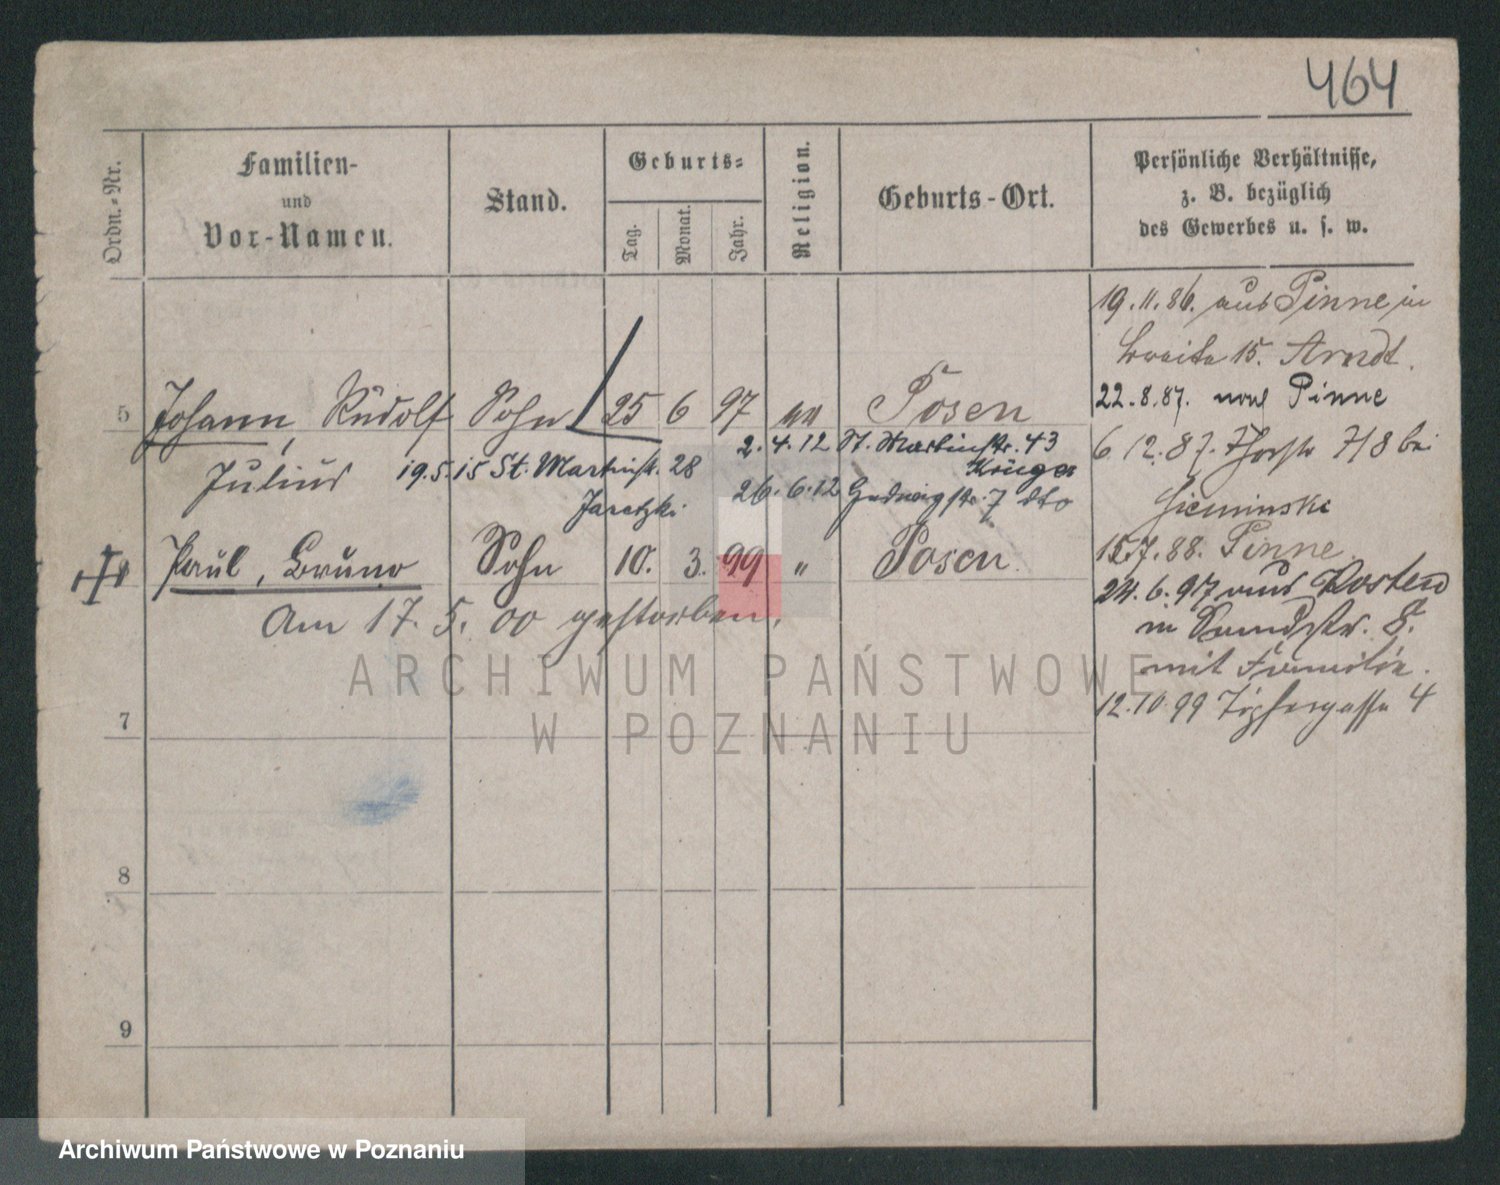 464
Ordn.-Nr.
Familien-
und
Vor-Namen.
Stand.
Geburts-
Tag.
Monat.
Jahr.
Religion.
Geburts-Ort.
Persönliche Verhältnisse,
z. B. bezüglich
des Gewerbes u. s. w.
19.11.86. aus Pinne in
Breite 15. Arndt.
22.8.87. nach Pinne
5 Johann, Rudolf Sohn 25 6 97 Posen
2.4.12 St. Martinstr. 43
Krüger
6 12.87. 7/8 bei
Julius 19.5.15 St. Martinstr. 28
Jaretzki.
26.6.12 Hedwigstr. 7 dto
Sieminski
Paul, Bruno Sohn 10. 3. 99 " Posen
15.7.88. Pinne.
Am 17. 5. 00 gestorben.
24.6.97 aus Kosten
in Sandstr. 8.
mit Familie.
12.10.99 Töpfergasse 4
7
8
9
ARCHIWUM PAŃSTWOWE
W POZNANIU
Archiwum Państwowe w Poznaniu